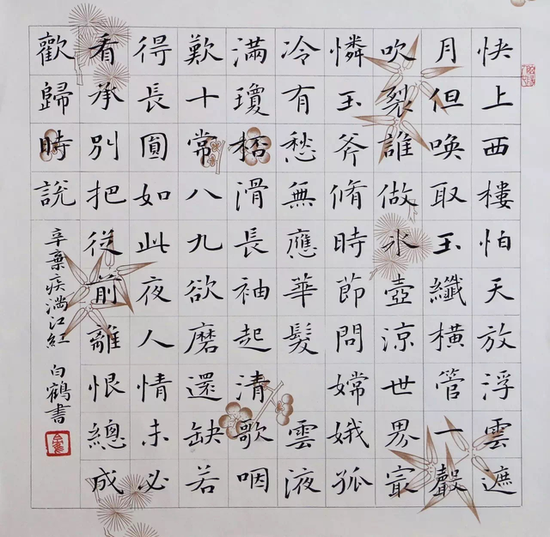 快上西樓怕天放浮雲遮
月但喚取玉纖橫管一聲
吹裂誰做冰壺涼世界㝡
憐玉斧脩時節問嫦娥孤
冷有愁無應華髮 雲液
滿瓊桮滑長袖起清歌咽
歎十常八九欲磨還缺若
得長圓如此夜人情未必
看承別把從前離恨總成
歡歸時說
辛棄疾滿江紅 白鶴書